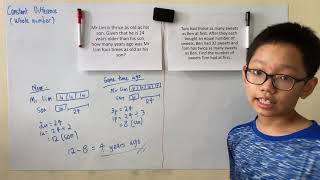 Constant Difference
(Whole number)
Mr Lim is thrice as old as his
son. Given that he is 24
years older than his son,
how many years ago was Mr
Lim four times as old as his
son?
Tom had thrice as many sweets
as Ben at first. After they each
bought an equal number of
sweets, Ben had 32 sweets and
Tom has twice as many sweets
as Ben. Find the number of
sweets Tom had at first.
Now:
Mr Lim
Son
24
2u = 24
1u = 24 ÷ 2
= 12 (son)
Some time ago
Mr Lim
Son
24
3p = 24
1p = 24 ÷ 3
= 8 (son)
12 - 8 = 4 years ago